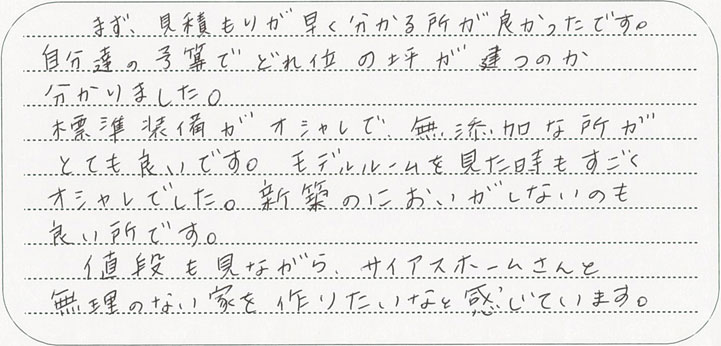 まず、見積もりが早く分かる所が良かったです。
自分達の予算でどれ位の坪が建つのか
分かりました。
標準装備がオシャレで、無添加な所が
とても良いです。モデルルームを見た時もすごく
オシャレでした。新築のにおいがしないのも
良い所です。
値段も見ながら、サイアスホームさんと
無理のない家を作りたいなと感じています。